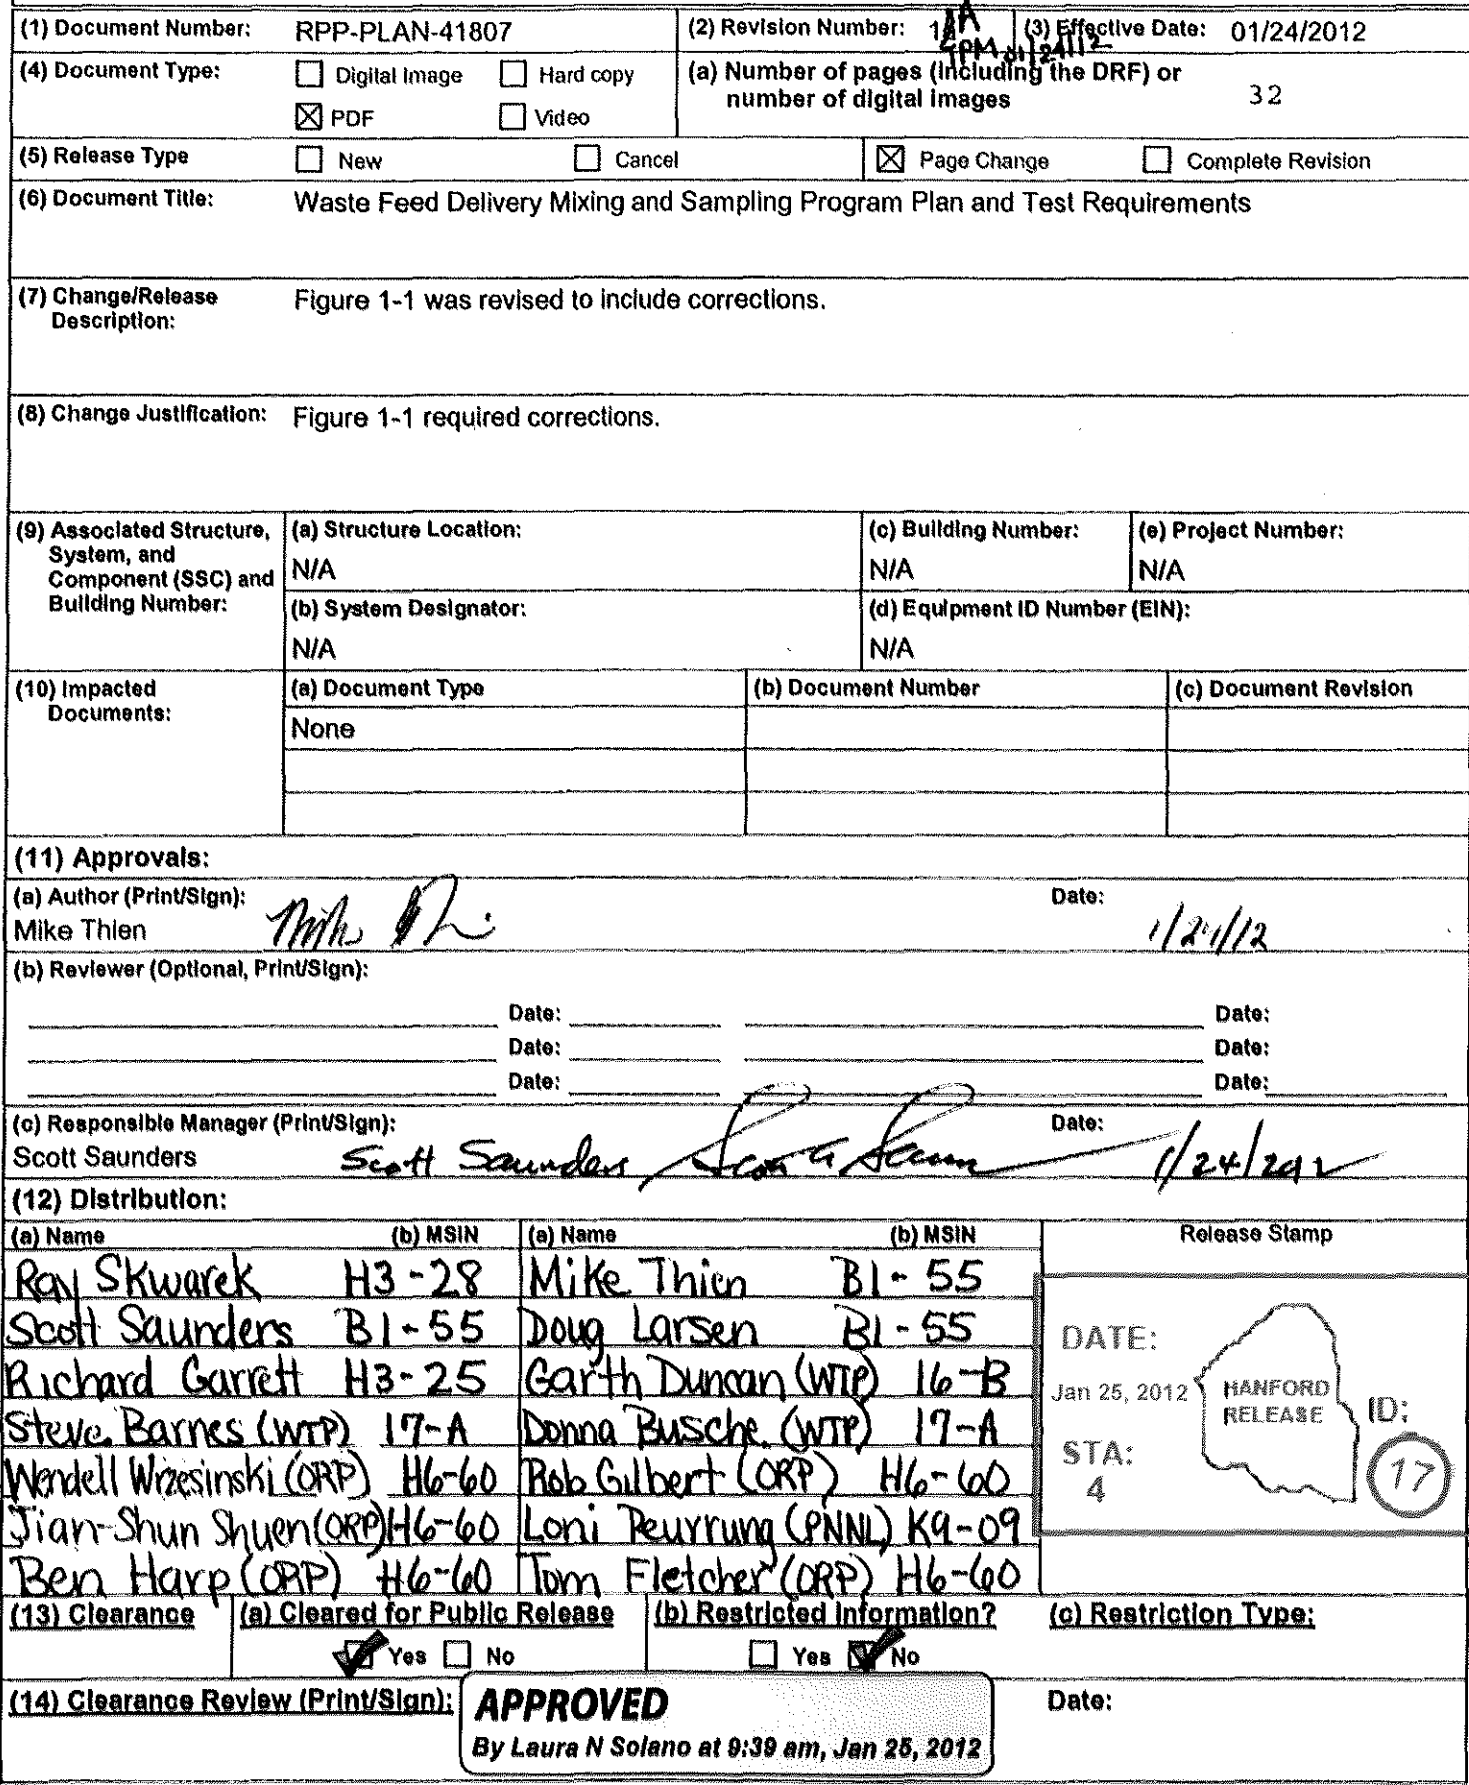 (1) Document Number: RPP-PLAN-41807 (2) Revision Number: 1 A (3) Effective Date: 01/24/2012
TPM 01/24/12
(4) Document Type: Digital Image Hard copy (a) Number of pages (including the DRF) or number of digital images 32
PDF Video
(5) Release Type New Cancel Page Change Complete Revision
(6) Document Title: Waste Feed Delivery Mixing and Sampling Program Plan and Test Requirements
(7) Change/Release Description: Figure 1-1 was revised to include corrections.
(8) Change Justification: Figure 1-1 required corrections.
(9) Associated Structure, System, and Component (SSC) and Building Number:
(a) Structure Location: (c) Building Number: (e) Project Number:
N/A N/A N/A
(b) System Designator: (d) Equipment ID Number (EIN):
N/A N/A
(10) Impacted Documents: (a) Document Type (b) Document Number (c) Document Revision
None
(11) Approvals:
(a) Author (Print/Sign): Date:
Mike Thien 1/24/12
(b) Reviewer (Optional, Print/Sign):
Date: Date:
Date: Date:
Date: Date:
(c) Responsible Manager (Print/Sign): Date:
Scott Saunders Scott Saunders 1/24/2012
(12) Distribution:
(a) Name (b) MSIN (a) Name (b) MSIN Release Stamp
Ray Skwarek H3-28 Mike Thien B1-55
Scott Saunders B1-55 Doug Larsen B1-55
Richard Garrett H3-25 Garth Duncan (WTP) 16-B
Steve Barnes (WTP) 17-A Donna Busche (WTP) 17-A
Wendell Wrzesinski (ORP) H6-60 Rob Gilbert (ORP) H6-60
Jian-Shun Shuen (ORP) H6-60 Loni Peurrung (PNNL) K9-09
Ben Harp (ORP) H6-60 Tom Fletcher (ORP) H6-60
DATE:
Jan 25, 2012
HANFORD
RELEASE
ID:
STA:
4
17
(13) Clearance (a) Cleared for Public Release (b) Restricted Information? (c) Restriction Type:
Yes No Yes No
(14) Clearance Review (Print/Sign): Date:
APPROVED
By Laura N Solano at 9:39 am, Jan 25, 2012